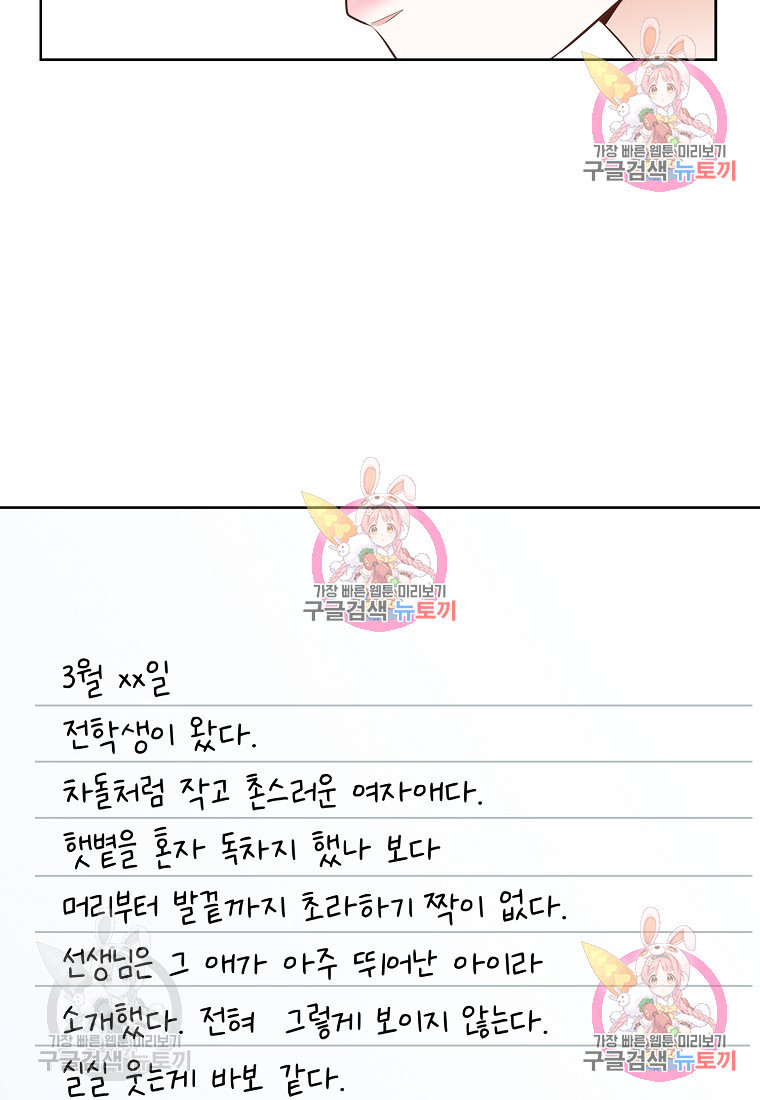 가장 빠른 웹툰 미리보기
구글검색 뉴토끼
가장 빠른 웹툰 미리보기
구글검색 뉴토끼
3월 xx일
전학생이 왔다.
차돌처럼 작고 촌스러운 여자애다.
햇볕을 혼자 독차지 했나 보다
머리부터 발끝까지 초라하기 짝이 없다.
선생님은 그 애가 아주 뛰어난 아이라
소개했다. 전혀 그렇게 보이지 않는다.
실실 웃는게 바보 같다.
가장 빠른 웹툰 미리보기
구글검색 뉴토끼
가장 빠른 웹툰 미리보기
구글검색 뉴토끼